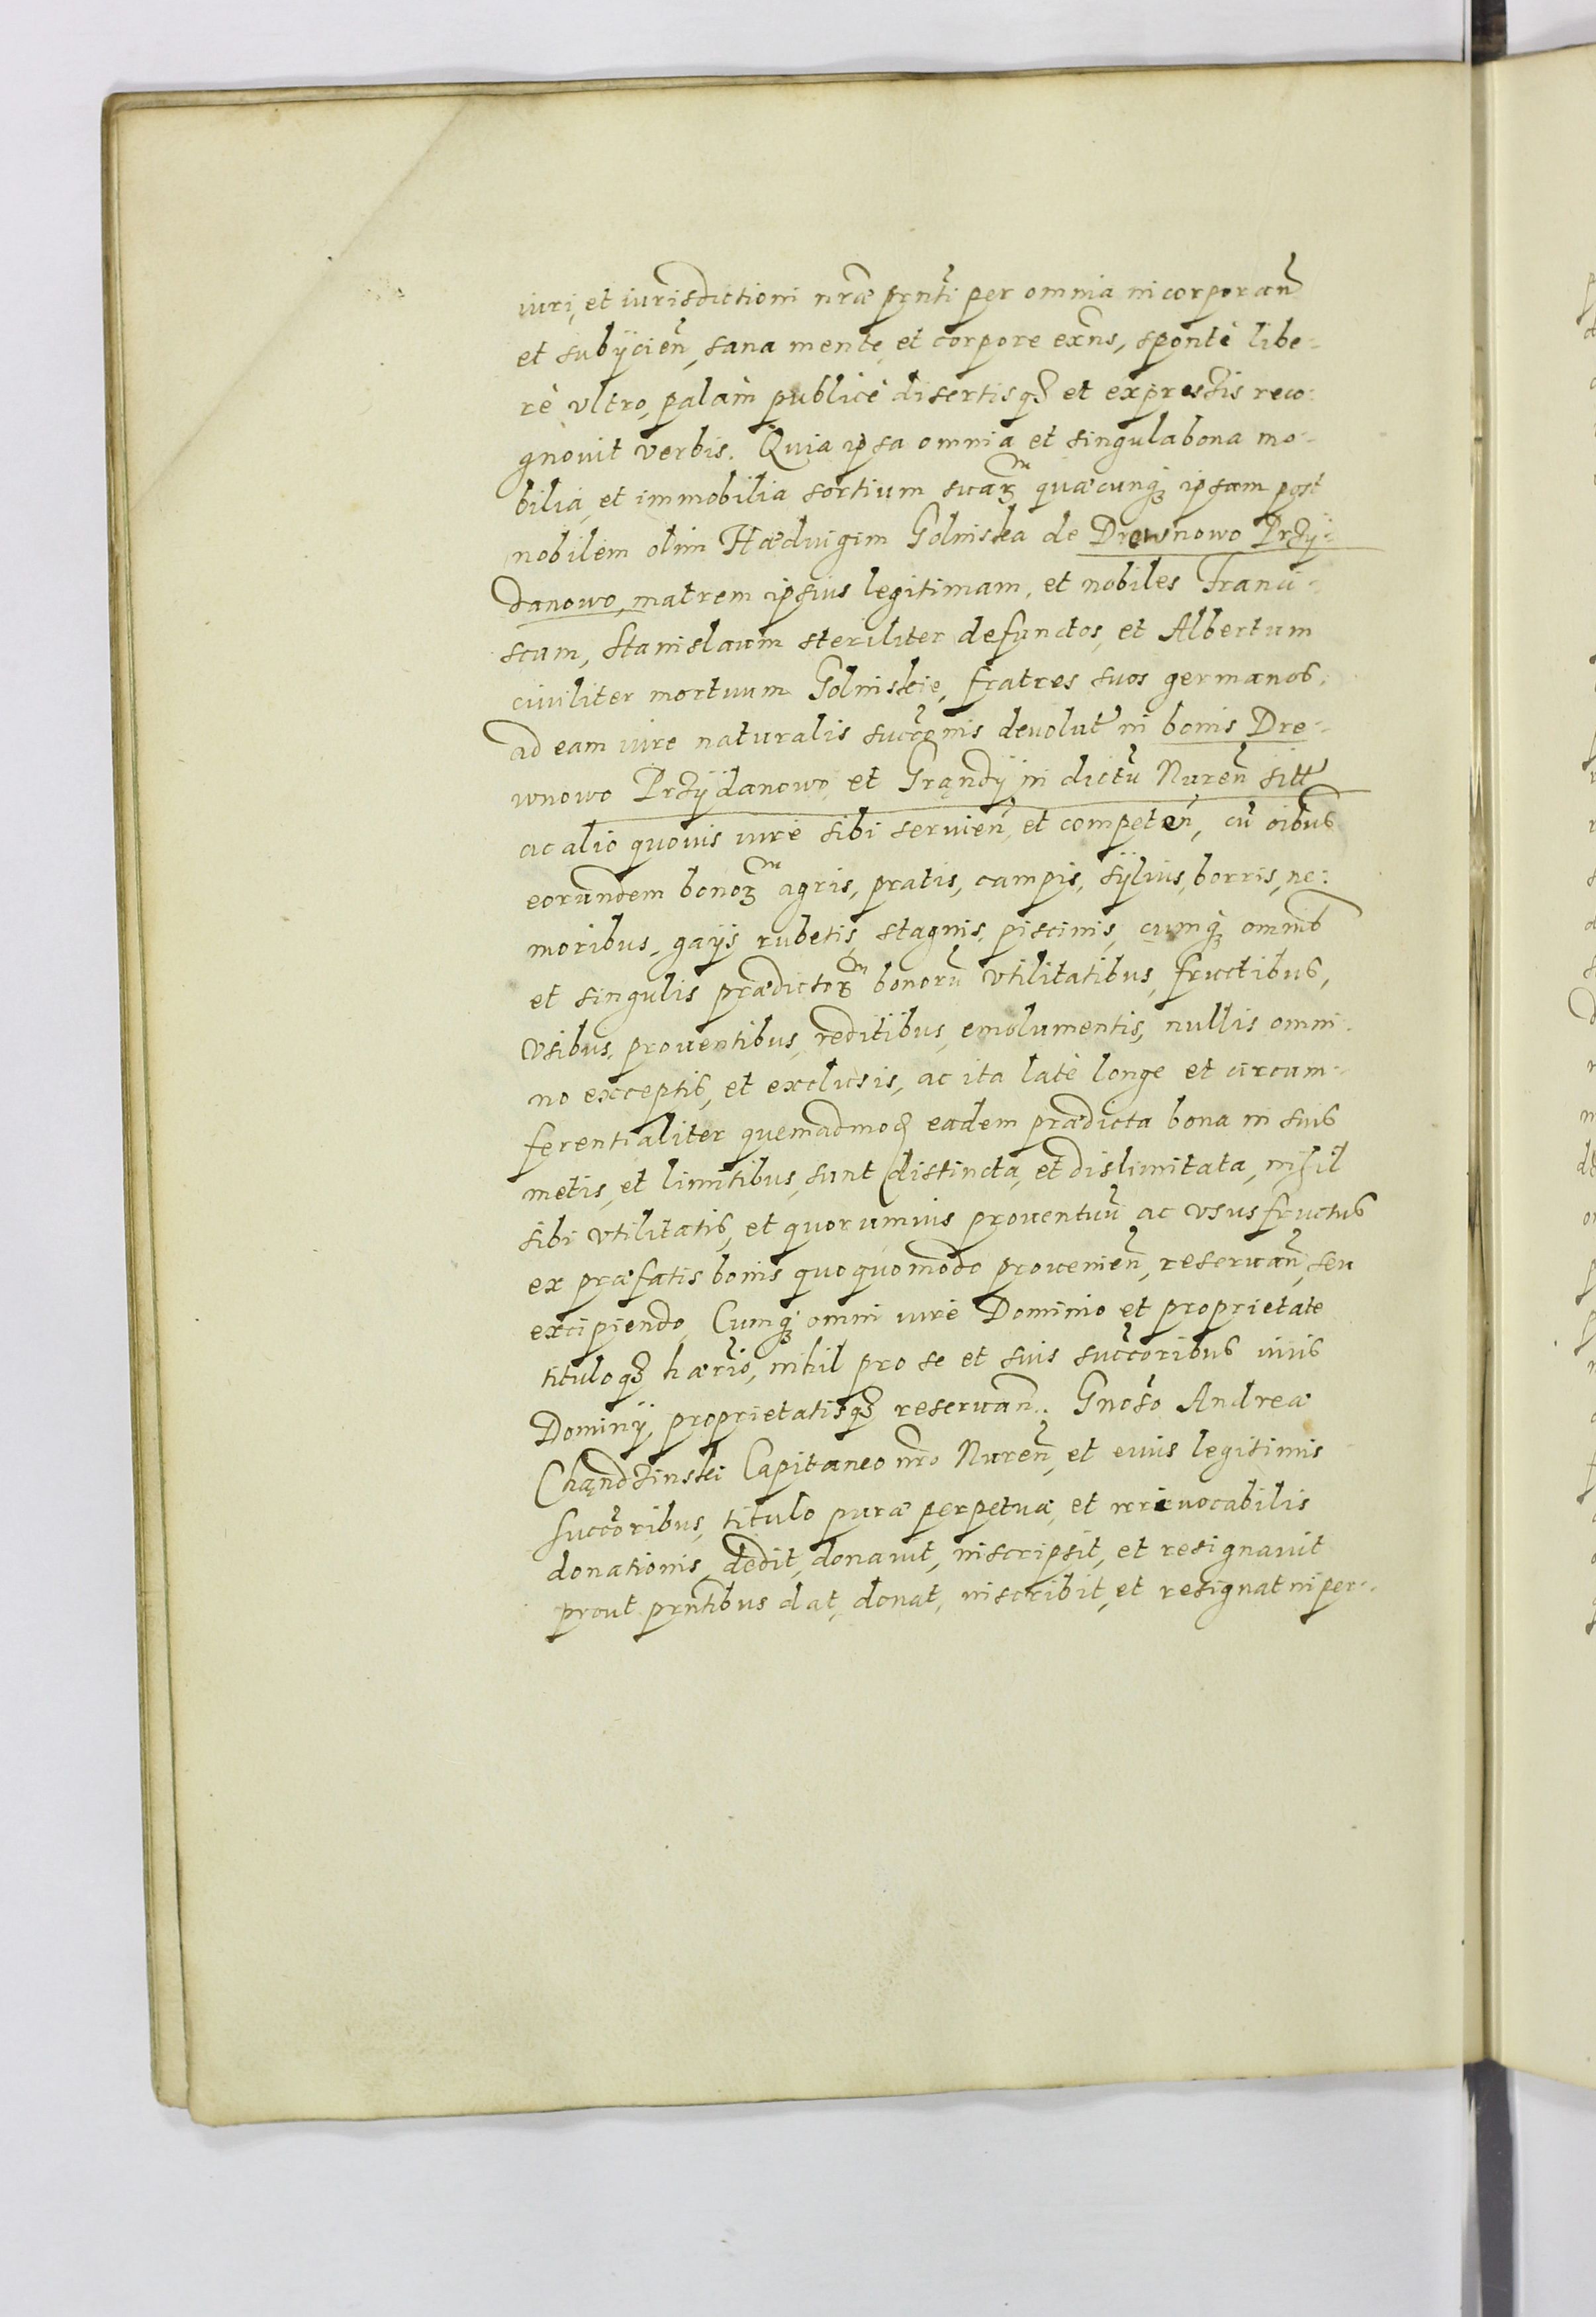 iuri, et iurisdictioni nr̃æ prñti per omnia incorporan̄
et subÿcien̄, sana mente, et corpore exñs, spontè libe-
rè vltro, palàm publicè disertisqȝ et expressis reco-
gnouit verbis. Quia ipsa omnia et singula bona mo-
bilia, et immobilia sortium suaꝝ quæcunqȝ ipsam post
nobilem olim Hæduigim Golniska de Drewnowo Przÿ-
danowo, matrem ipsius legitimam, et nobiles Franci-
scum, Stanislaum steriliter defunctos, et Albertum
ciuiliter mortuum Golniskie, fratres suos germanos,
ad eam iure naturalis succõnis deuolut̃ in bonis Dre-
wnowo Przÿdanowo, et Grąndÿ in dictũ Nuren̄ sitt̃
ac alio quouis iure sibi seruien̄, et competen̄, cũ oĩbus
eorundem bonoꝝ agris, pratis, campis, sÿluis, borris, ne-
moribus, gaÿs rubetis, stagnis, piscinis, cumqȝ omnib
et singulis prædictoꝝ bonorũ vtilitatibus, fructibus,
vsibus, prouentibus, reditibus, emolumentis, nullis omni-
no exceptis, et exclusis, ac ita latè longe et circum-
ferentialiter quemadmod̃ eadem prædicta bona in suis
metis, et limitibus, sunt distincta, et dislimitata, nihil
sibi vtilitatis, et quorumuis prouentuũ ac vsusfructus
ex præfatis bonis quoquomodo prouenien̄, reseruan̄, seu
excipiendo, Cumqȝ omni iure Dominio et proprietate
tituloqȝ hærio, nihil pro se et suis succõribus iuris
Dominÿ, proprietatisqȝ reseruan̄. Gnoso Andreæ
Chądzinski Capitaneo nrõ Nuren̄, et eiuis legitimis
succõribus, titulo puræ perpetuæ, et irreuocabilis
donationis, dedit, donauit, inscripsit, et resignauit
prout prñtibus dat, donat, inscribit, et resignat in per-